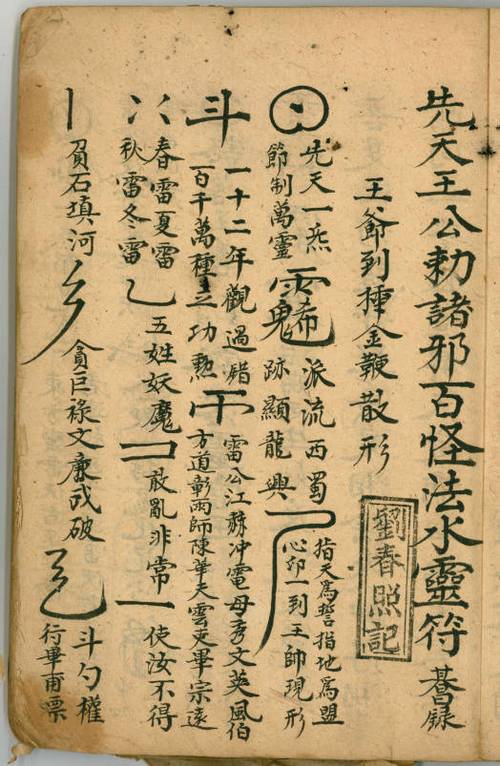 先天王公勅諸邪百怪法水靈符 畧錄
王爺到揰金鞭散形
劉春照記
先天一炁
節制萬靈
派流西蜀
跡顯龍興
指天為誓指地為盟
心卯一到王帥現形
斗
一十二年觀過錯
百千萬種立功勲
雷公江赫冲電母秀文英風伯
方道彰雨師陳華天雲吏畢宗遠
春雷夏雷
秋雷冬雷
乙
五姓妖魔
敢亂非常
一
使汝不得
丨
負石填河
貪巨祿文廉武破
斗勺權
行畢甫票